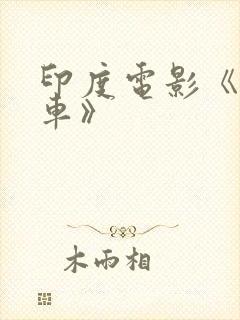 印度電影《
車》
木雨相